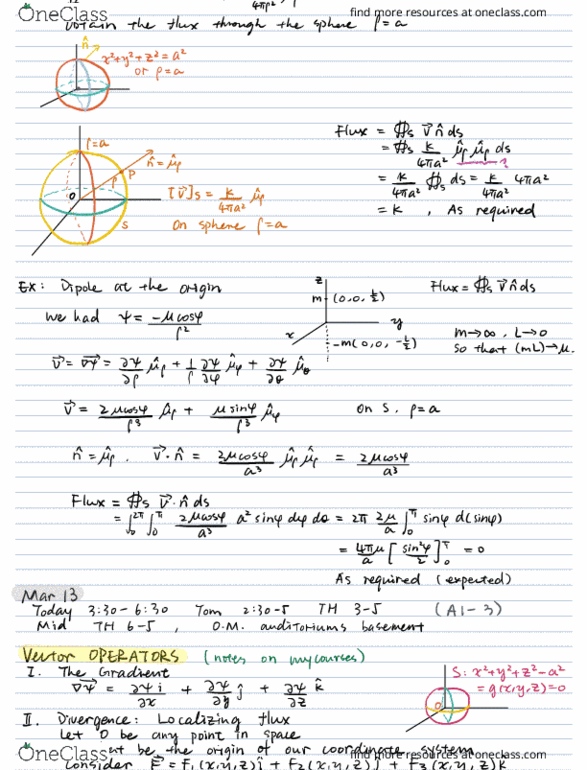 OneClass
find more resources at oneclass.com
obtain the flux through the sphere ρ=a
n̂
x²+y²+z²=a²
or ρ=a
ρ=a
n̂=μ̂ρ
P
ρ
O
[V⃗]s = k/4πa² μ̂ρ
S
on sphere ρ=a
Flux = ∯s V⃗ n̂ ds
= ∯s k/4πa² μ̂ρ μ̂ρ ds
= k/4πa² ∯s ds = k/4πa² 4πa²
= k , As required
Ex: Dipole at the origin
z
m (0,0,L/2)
y
x
-m(0,0,-L/2)
Flux = ∯s V⃗ n̂ ds
m→∞, L→0
so that (mL)→μ.
we had ψ = -μcosφ/ρ²
V⃗ = ∇⃗ψ = ∂ψ/∂ρ μ̂ρ + 1/ρ ∂ψ/∂φ μ̂φ + ∂ψ/∂θ μ̂θ
V⃗ = 2μcosφ/ρ³ μ̂ρ + μsinφ/ρ³ μ̂φ on S, ρ=a
n̂ = μ̂ρ. V⃗·n̂ = 2μcosφ/a³ μ̂ρ μ̂ρ = 2μcosφ/a³
Flux = ∯s V⃗·n̂ ds
= ∫₀²π ∫₀π 2μcosφ/a³ a² sinφ dφ dθ = 2π 2μ/a ∫₀π sinφ d(sinφ)
= 4πμ/a [sin²φ/2]₀π = 0
As required (expected)
Mar 13
Today 3:30-6:30 Tom 2:30-5 TH 3-5 (A1-3)
Mid TH 6-5, O.M. auditoriums basement
Vector OPERATORS (notes on mycourses)
I. The Gradient
∇⃗ψ = ∂ψ/∂x î + ∂ψ/∂y ĵ + ∂ψ/∂z k̂
S: x²+y²+z²-a²
= g(x,y,z)=0
O
II. Divergence: Localizing flux
Let O be any point in space
at be the origin of our coordinate system
OneClass
find more resources at oneclass.com
Consider F⃗ = f₁(x,y,z)î + f₂(x,y,z)ĵ + f₃(x,y,z)k̂